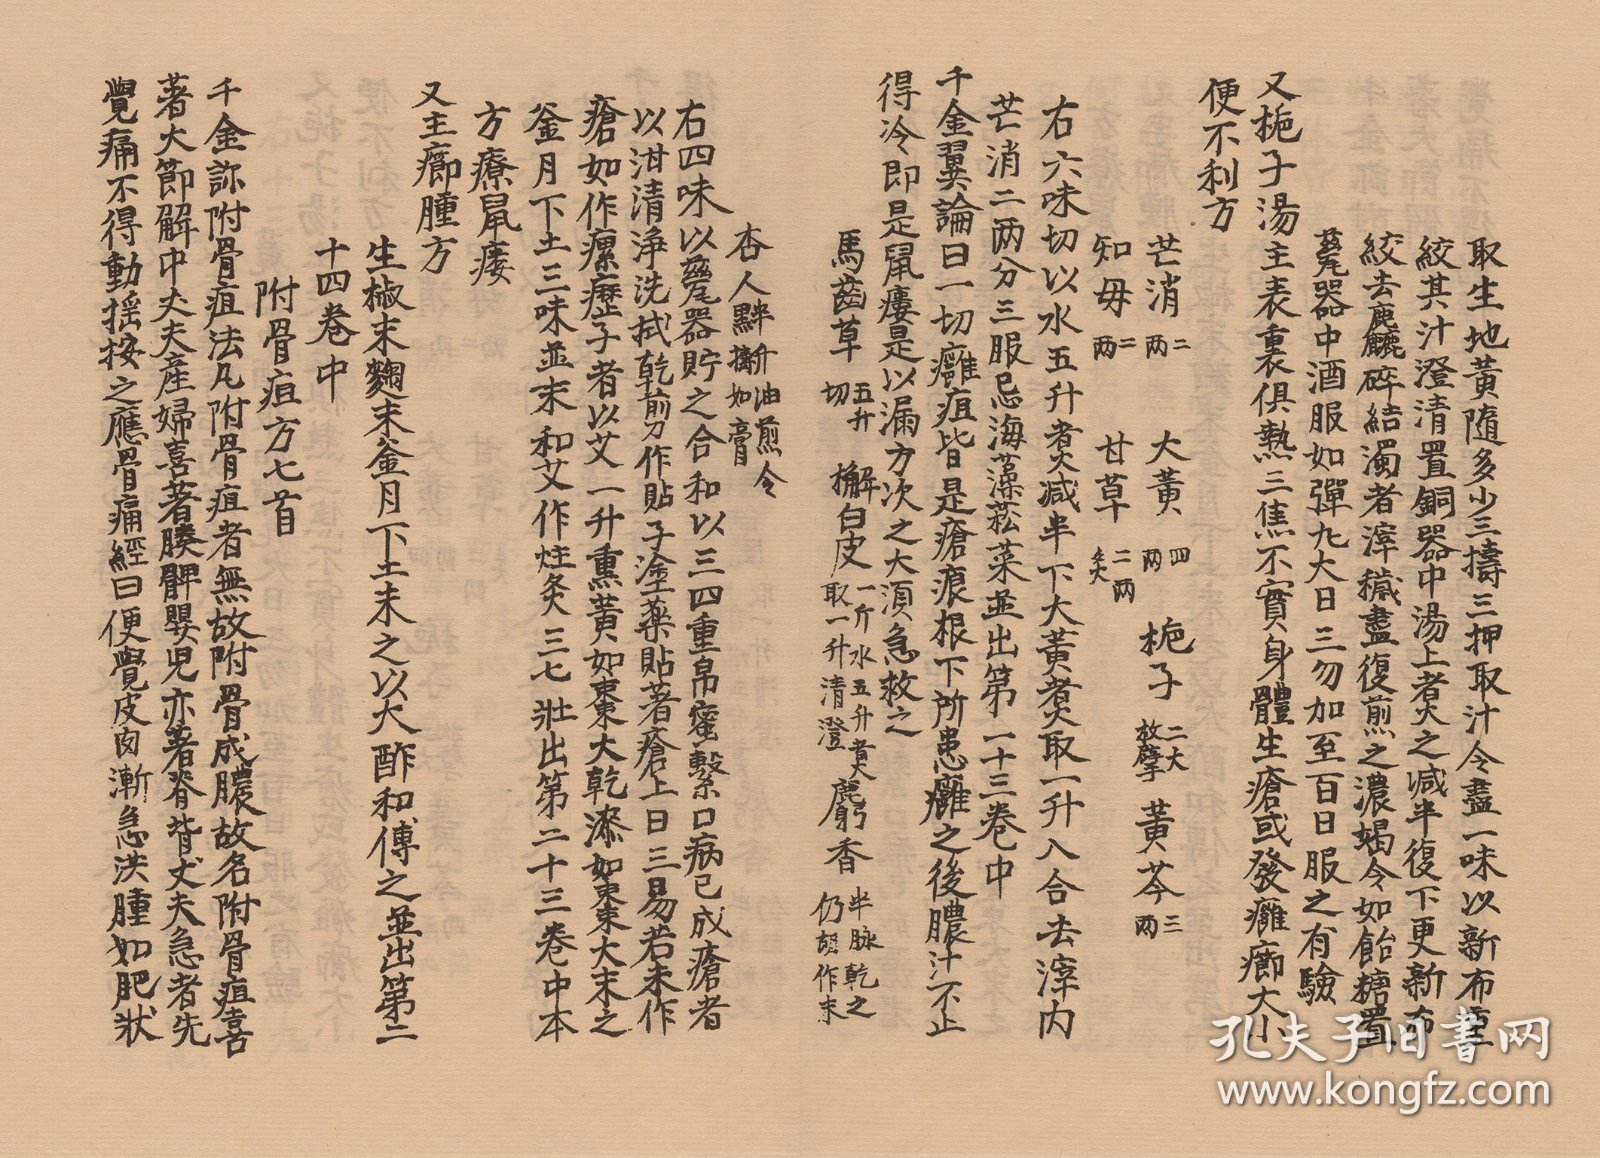 取生地黃隨多少三擣三押取汁令盡一味以新布重
絞其汁澄清置銅器中湯上煮之減半復下更新布
絞去麤碎結濁者滓穢盡復煎之濃竭令如飴糖置
甆器中酒服如彈丸大日三勿加至百日服之有驗
又梔子湯主表裏俱熱三焦不實身體生瘡或發癰癤大小
便不利方
芒消二兩 大黃四兩 梔子二大枚擘 黃芩三兩
知母二兩 甘草二兩炙
右六味切以水五升煮減半下大黃煮取一升八合去滓內
芒消二兩分三服忌海藻菘菜並出第一十三卷中
千金翼論曰一切癰疽皆是瘡痕根下所患癰之後膿汁不止
得冷即是鼠瘻是以漏方次之大須急救之
馬齒草五升切 槲白皮一斤水五升煮取一升清澄 麝香半脉乾之仍胡作末
杏人半升油煎令黑擣如膏
右四味以甆器貯之合和以三四重帛蜜繫口病已成瘡者
以泔清淨洗拭乾剪作貼子塗藥貼著瘡上日三易若未作
瘡如作瘰癧子者以艾一升熏黃如棗大乾漆如棗大末之
釜月下土三味並末和艾作炷灸三七壯出第二十三卷中本
方療鼠瘻
又主癤腫方
生椒末麴末釜月下土末之以大酢和傅之並出第二
十四卷中
附骨疽方七首
千金論附骨疽法凡附骨疽者無故附骨成膿故名附骨疽喜
著大節解中丈夫産婦喜著䐚髀嬰児亦著脊背丈夫急者先
覺痛不得動搖按之應骨痛經日便覺皮肉漸急洪腫如肥狀
孔夫子旧书网
www.kongfz.com